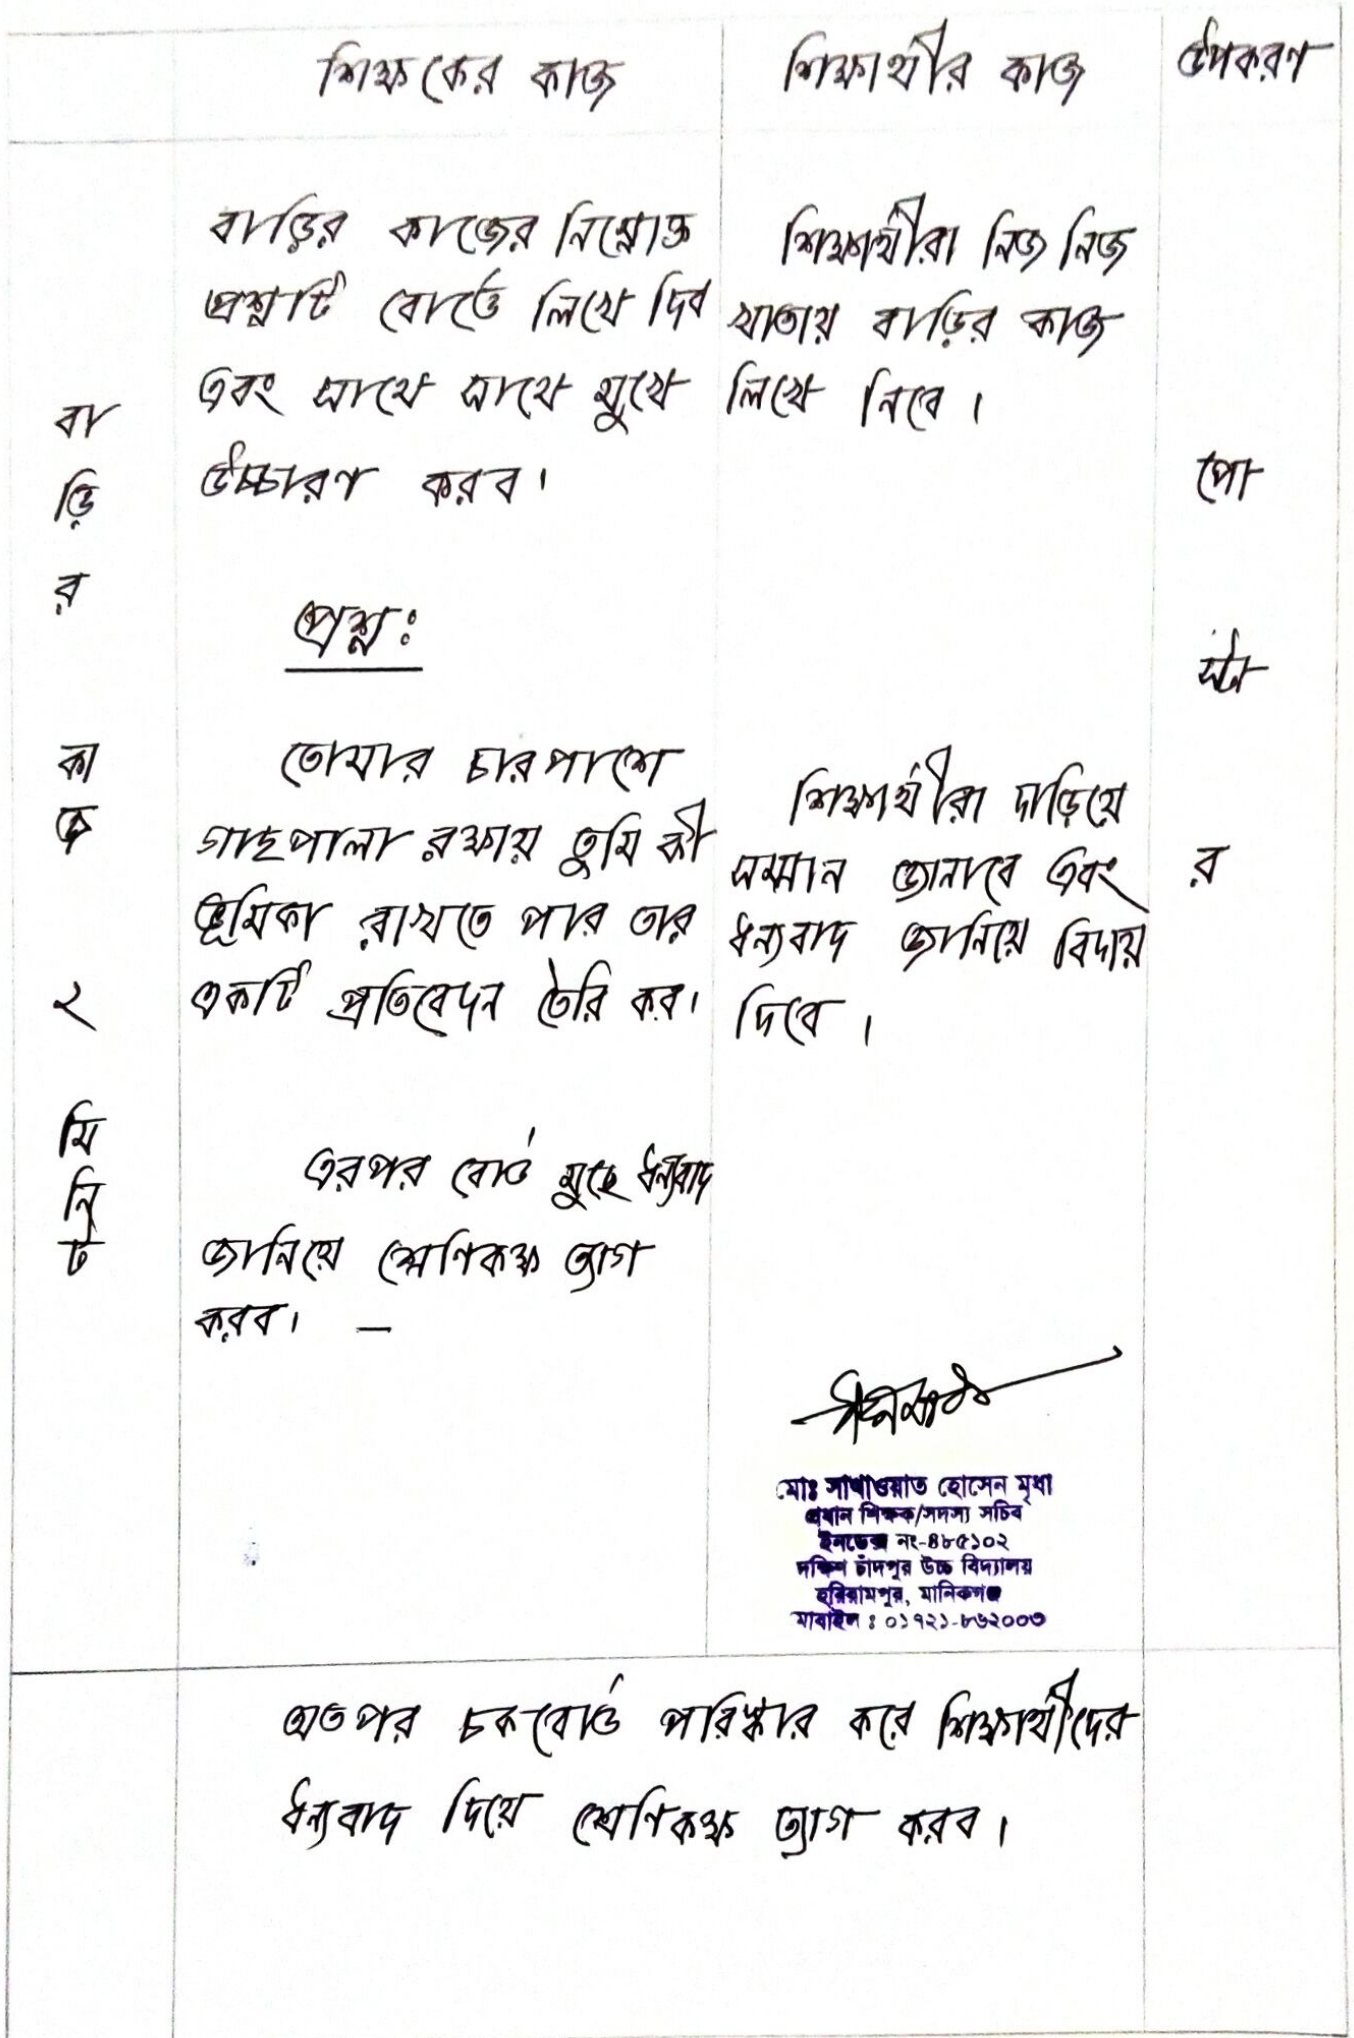 শিক্ষকের কাজ
শিক্ষার্থীর কাজ
উপকরণ
বাড়ির কাজ ২ মিনিট
বাড়ির কাজের নিম্নোক্ত
প্রশ্নটি বোর্ডে লিখে দিব
এবং সাথে সাথে মুখে
উচ্চারণ করব।
প্রশ্ন:
তোমার চারপাশে
গাছপালা রক্ষায় তুমি কী
ভূমিকা রাখতে পার তার
একটি প্রতিবেদন তৈরি কর।
এরপর বোর্ড মুছে ধন্যবাদ
জানিয়ে শ্রেণিকক্ষ ত্যাগ
করব। —
শিক্ষার্থীরা নিজ নিজ
খাতায় বাড়ির কাজ
লিখে নিবে।
শিক্ষার্থীরা দাড়িয়ে
সম্মান জানাবে এবং
ধন্যবাদ জানিয়ে বিদায়
দিবে।
পোস্টার
মোঃ সাখাওয়াত হোসেন মৃধা
প্রধান শিক্ষক/সদস্য সচিব
ইনডেক্স নং-৪৮৫১০২
দক্ষিণ চাঁদপুর উচ্চ বিদ্যালয়
হরিরামপুর, মানিকগঞ্জ
মোবাইল : ০১৭২১-৮৬২০০৩
অতপর চকবোর্ড পরিস্কার করে শিক্ষার্থীদের
ধন্যবাদ দিয়ে শ্রেণিকক্ষ ত্যাগ করব।